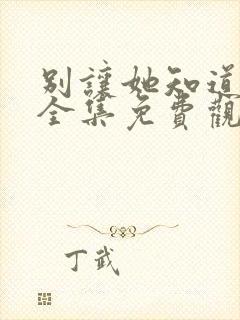 別讓她知道
全集免費觀
丁武